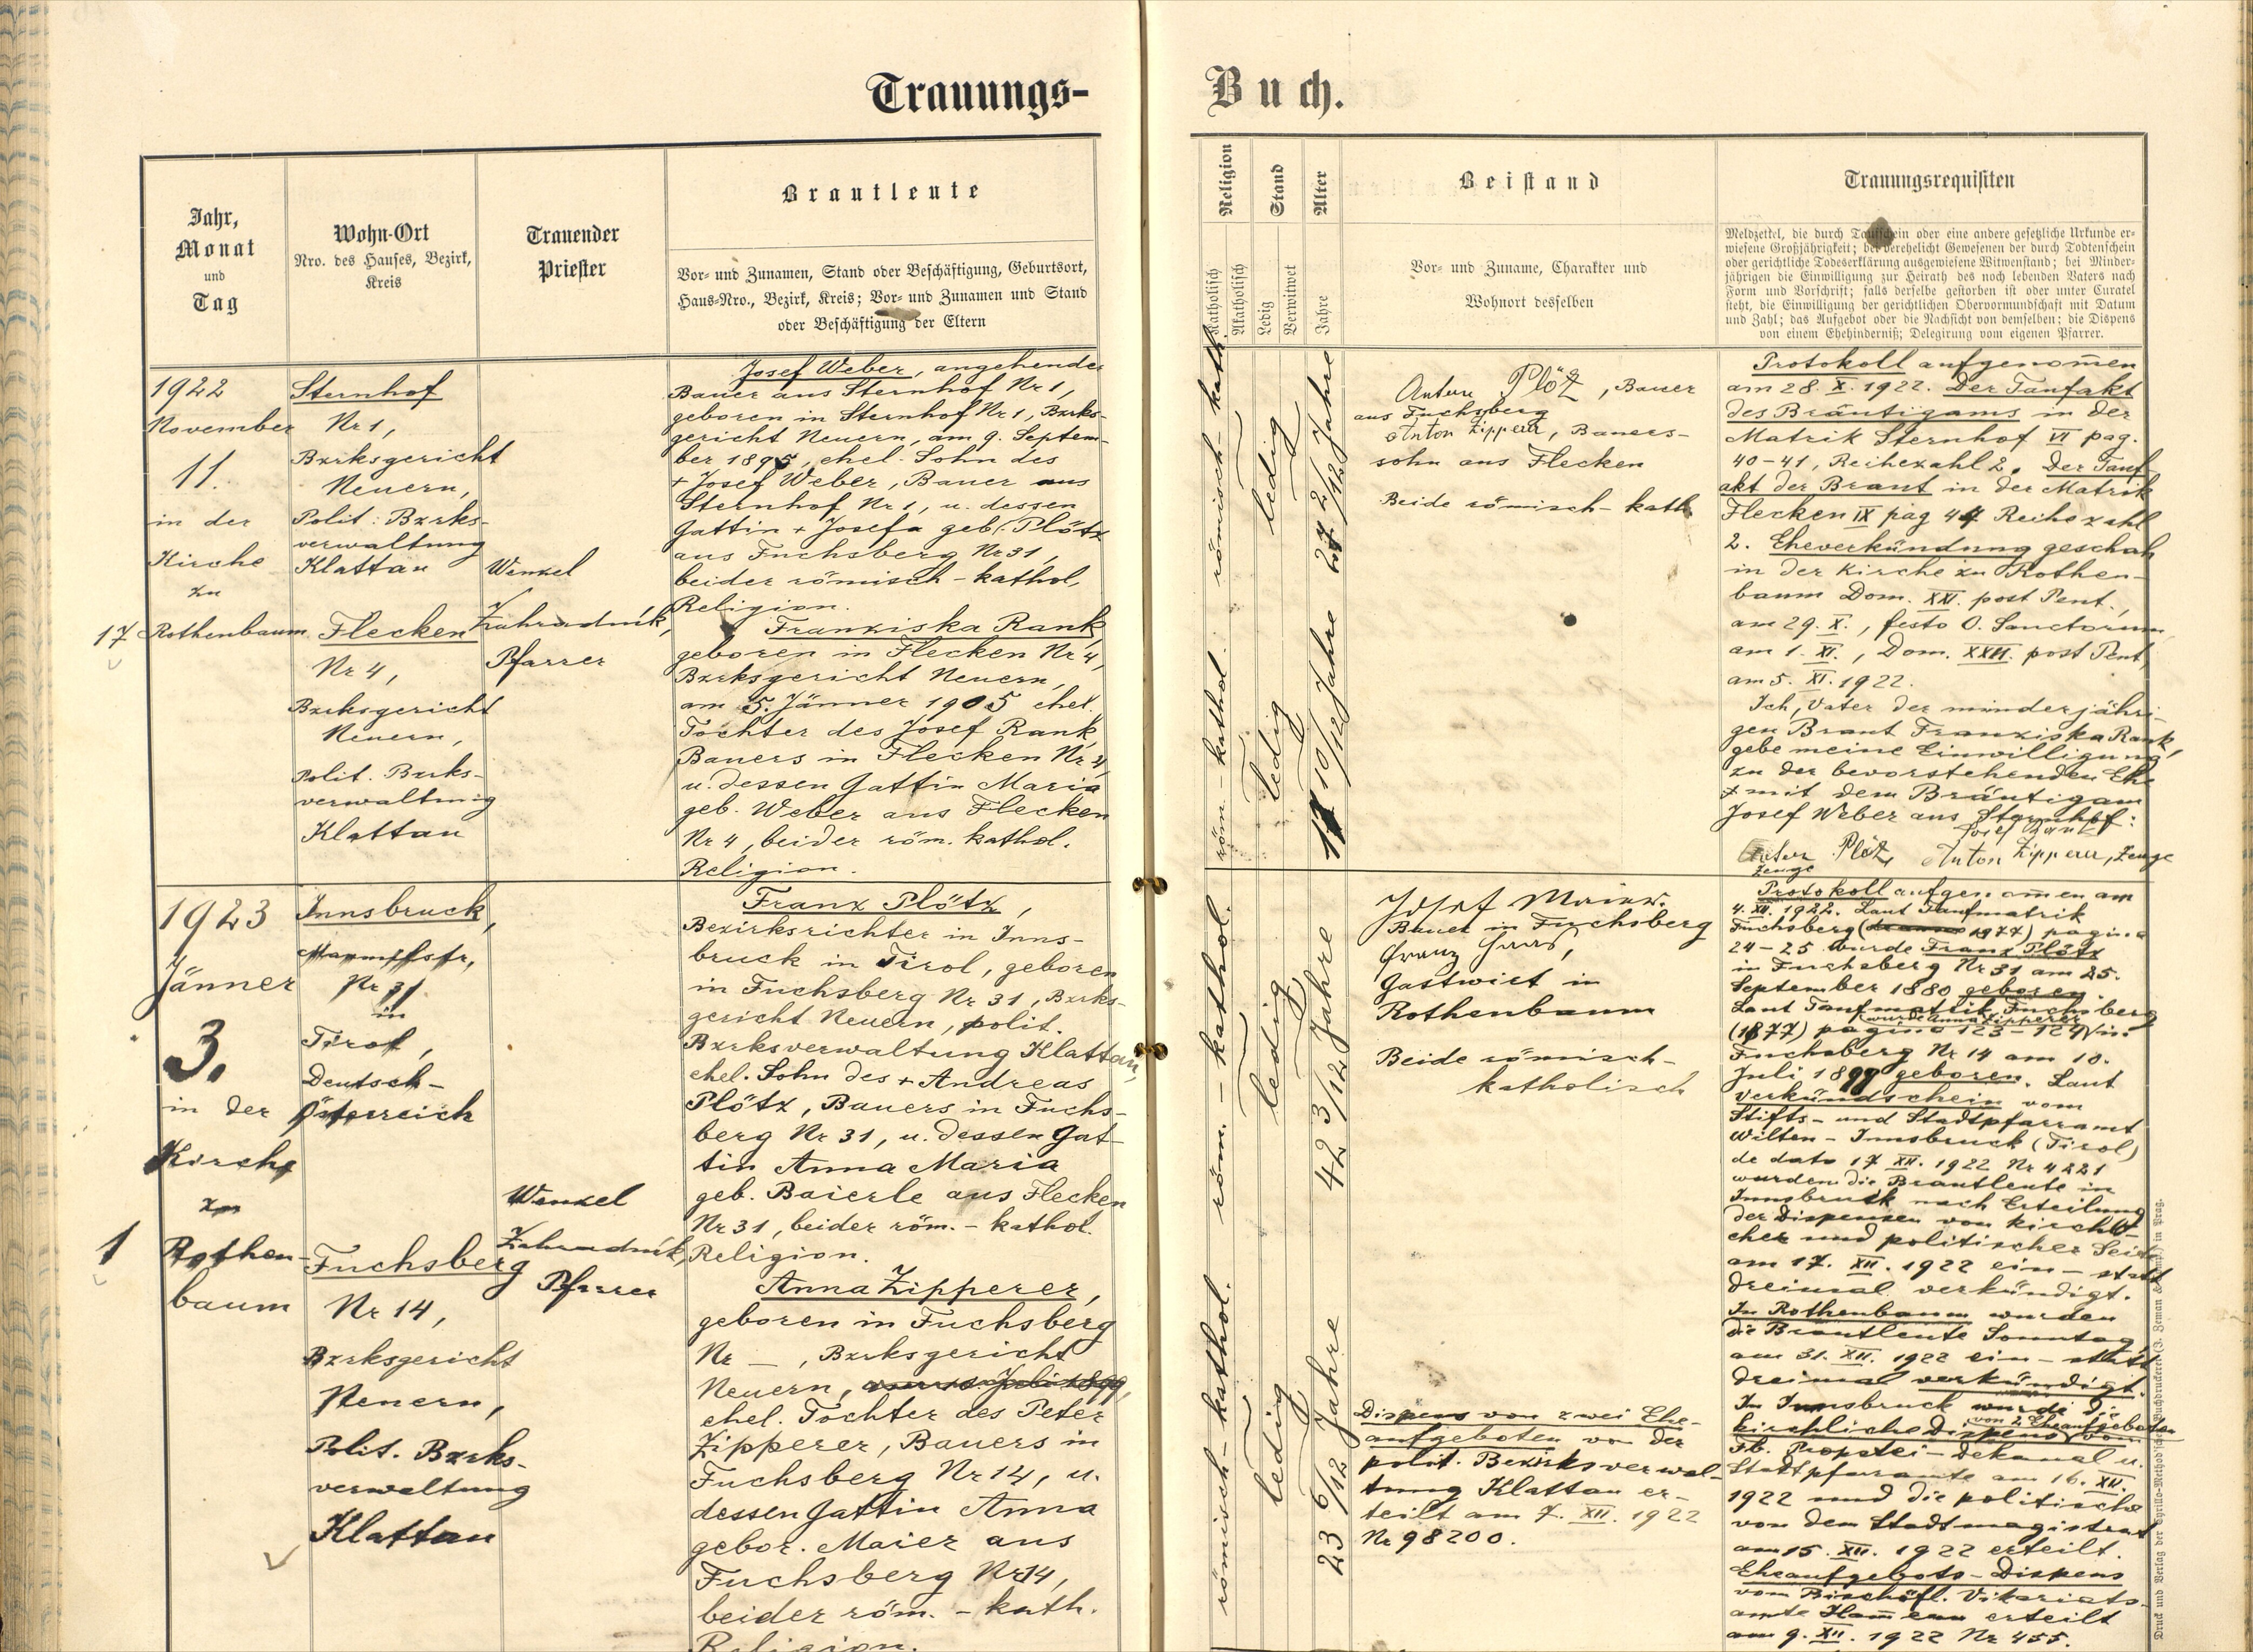 Trauungs-
Buch.
Jahr,
Monat
und
Tag
Wohn-Ort
Nro. des Hauses, Bezirk,
Kreis
Trauender
Priester
Brautleute
Vor- und Zunamen, Stand oder Beschäftigung, Geburtsort,
Haus-Nro., Bezirk, Kreis; Vor- und Zunamen und Stand
oder Beschäftigung der Eltern
Religion
Katholisch
Akatholisch
Stand
Ledig
Verwitwet
Alter
Jahre
Beistand
Vor- und Zuname, Charakter und
Wohnort desselben
Trauungsrequisiten
Meldzettel, die durch Taufschein oder eine andere gesetzliche Urkunde er-
wiesene Großjährigkeit; bei verehelicht Gewesenen der durch Todtenschein
oder gerichtliche Todeserklärung ausgewiesene Witwenstand; bei Minder-
jährigen die Einwilligung zur Heirath des noch lebenden Vaters nach
Form und Vorschrift; falls derselbe gestorben ist oder unter Curatel
steht, die Einwilligung der gerichtlichen Obervormundschaft mit Datum
und Zahl; das Aufgebot oder die Nachsicht von demselben; die Dispens
von einem Ehehinderniß; Delegirung vom eigenen Pfarrer.
17
1922
November
11.
in der
Kirche
zu
Rothenbaum
Sternhof
Nr 1,
Bzrksgericht
Neuern,
Polit: Bzrks-
verwaltung
Klattau
Flecken
Nr 4,
Bzrksgericht
Neuern,
Polit. Bzrks-
verwaltung
Klattau
Wenzel
Zahradník,
Pfarrer
Josef Weber, angehender
Bauer aus Sternhof Nr 1,
geboren in Sternhof Nr 1, Bzrks-
gericht Neuern, am 9. Septem-
ber 1895, ehel. Sohn des
+ Josef Weber, Bauer aus
Sternhof Nr 1, u. dessen
Gattin + Josefa geb. Plötz
aus Fuchsberg Nr 31,
beider römisch-kathol.
Religion.
Franziska Rank
geboren in Flecken Nr 4,
Bzrksgericht Neuern,
am 5. Jänner 1905 ehel.
Tochter des Josef Rank
Bauers in Flecken Nr 4,
u. dessen Gattin Maria
geb. Weber aus Flecken
Nr 4, beider röm. kathol.
Religion.
römisch-kath.
ledig
27 2/12 Jahre
röm.-kathol.
ledig
17 10/12 Jahre
Anton Plötz, Bauer
aus Fuchsberg
Anton Zipperer, Bauers-
sohn aus Flecken
Beide römisch-kath
Protokoll aufgenommen
am 28. X. 1922. Der Taufakt
des Bräutigams in der
Matrik Sternhof VI pag.
40-41, Reihezahl 2. Der Tauf-
akt der Braut in der Matrik
Flecken IX pag 44 Reihezahl
2. Eheverkündung geschah
in der Kirche zu Rothen-
baum Dom. XXI. post Pent.,
am 29. X., festo O. Sanctorum
am 1. XI., Dom. XXII. post Pent,
am 5. XI. 1922.
Ich, Vater der minderjähri-
gen Braut Franziska Rank,
gebe meine Einwilligung
zu der bevorstehenden Ehe
mit dem Bräutigam
Josef Weber aus Sternhof:
Josef Rank
Anton Plötz, Anton Zipperer, Zeuge
Zeuge
1
1923
Jänner
3.
in der
Kirche
zu
Rothen-
baum
Innsbruck,
Nr 31
in
Tirol,
Deutsch-
Österreich
Fuchsberg
Nr 14,
Bzrksgericht
Neuern,
Polit. Bzrks-
verwaltung
Klattau
Wenzel
Zahradník,
Pfarrer
Franz Plötz,
Bezirksrichter in Inns-
bruck in Tirol, geboren
in Fuchsberg Nr 31, Bzrks-
gericht Neuern, polit.
Bzrksverwaltung Klattau,
ehel. Sohn des + Andreas
Plötz, Bauers in Fuchs-
berg Nr 31, u. dessen Gat-
tin Anna Maria
geb. Baierle aus Flecken
Nr 31, beider röm.-kathol.
Religion.
Anna Zipperer,
geboren in Fuchsberg
Nr —, Bzrksgericht
Neuern,
ehel. Tochter des Peter
Zipperer, Bauers in
Fuchsberg Nr 14, u.
dessen Gattin Anna
gebor. Maier aus
Fuchsberg Nr 14,
beider röm.-kath.
Religion.
röm.-kathol.
ledig
42 3/12 Jahre
römisch-kathol.
ledig
23 6/12 Jahre
Josef Maier.
Bauer in Fuchsberg
Franz
Gastwirt in
Rothenbaum
Beide römisch-
katholisch
Dispens von zwei Ehe-
aufgeboten von der
polit. Bezirksverwal-
tung Klattau er-
teilt am 7. XII. 1922
Nr 98200.
Protokoll aufgenommen am
4. XII. 1922. Laut Taufmatrik
Fuchsberg (1877) pagina
24-25 wurde Franz Plötz
in Fuchsberg Nr 31 am 25.
September 1880 geboren.
Laut Taufmatrik Fuchsberg
wurde Anna Zipperer
(1877) pagina 123-124 in
Fuchsberg Nr 14 am 10.
Juli 1899 geboren. Laut
Verkündschein vom
Stifts- und Stadtpfarramt
Wilten-Innsbruck (Tirol)
de dato 17 XII. 1922 Nr 4221
wurden die Brautleute in
Innsbruck nach Erteilung
der Dispensen von kirchli-
cher und politischer Seite
am 17. XII. 1922 ein-statt
dreimal verkündigt.
In Rothenbaum wurden
die Brautleute Sonntag,
am 31. XII. 1922 ein-statt
dreimal verkündigt.
In Innsbruck wurde die
von 2 Eheaufgeboten
kirchliche Dispens vom
Fb. Propstei-Dekanal u.
Stadtpfarramte am 16. XII.
1922 und die politische
von dem Stadtmagistrat
am 15. XII. 1922 erteilt.
Eheaufgebots-Dispens
vom Bischöfl. Vikariats-
amte erteilt
am 9. XII. 1922 Nr 455.